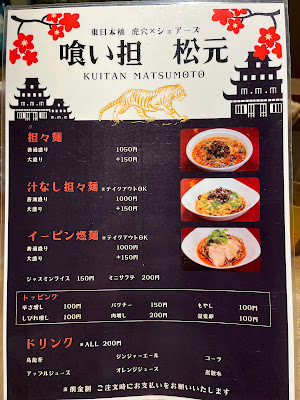 東日本橋 虎穴×シェアーズ
喰い担 松元
KUITAN MATSUMOTO
担々麺
普通盛り 1050円
大盛り +150円
汁なし担々麺 ※テイクアウトOK
普通盛り 1000円
大盛り +150円
イーピン燃麺 ※テイクアウトOK
普通盛り 1000円
大盛り +150円
ジャスミンライス 150円 ミニサラダ 200円
トッピング
辛さ増し 100円 パクチー 150円 もやし 100円
しびれ増し 100円 肉増し 200円 温泉卵 100円
ドリンク ※ALL 200円
烏龍茶 ジンジャーエール コーラ
アップルジュース オレンジジュース 炭酸水
※前金制 ご注文時にお支払いをお願いいたします